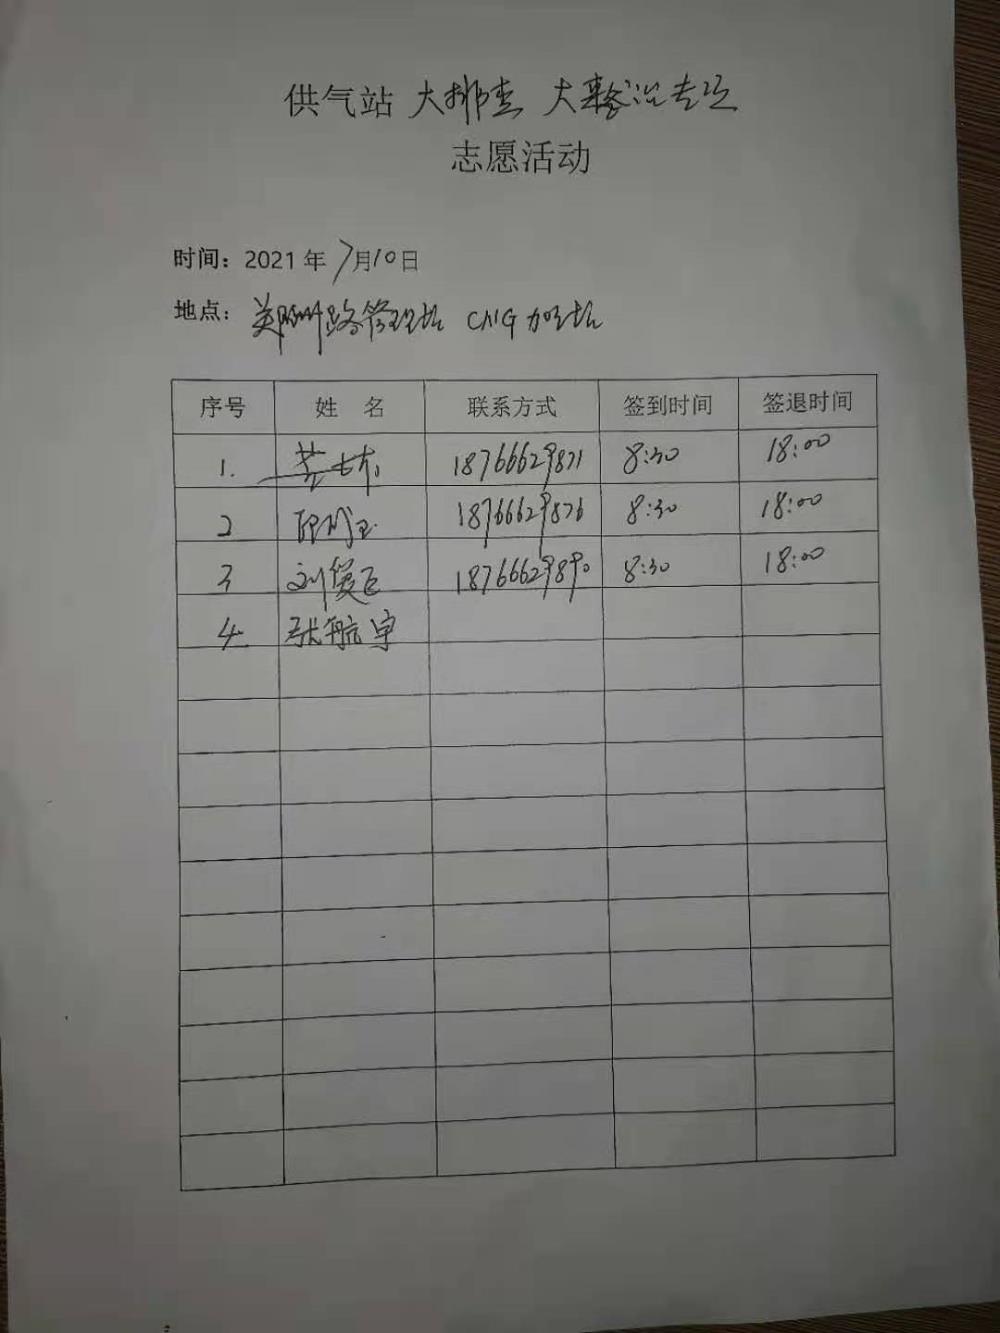 供气站 大排查 大整治专项
志愿活动
时间：2021年7月10日
地点：郑州路管理站 CNG加气站
序号 姓 名 联系方式 签到时间 签退时间
1. 18766629871 8:30 18:00
2 18766629876 8:30 18:00
3 刘 18766629890 8:30 18:00
4 张航宇